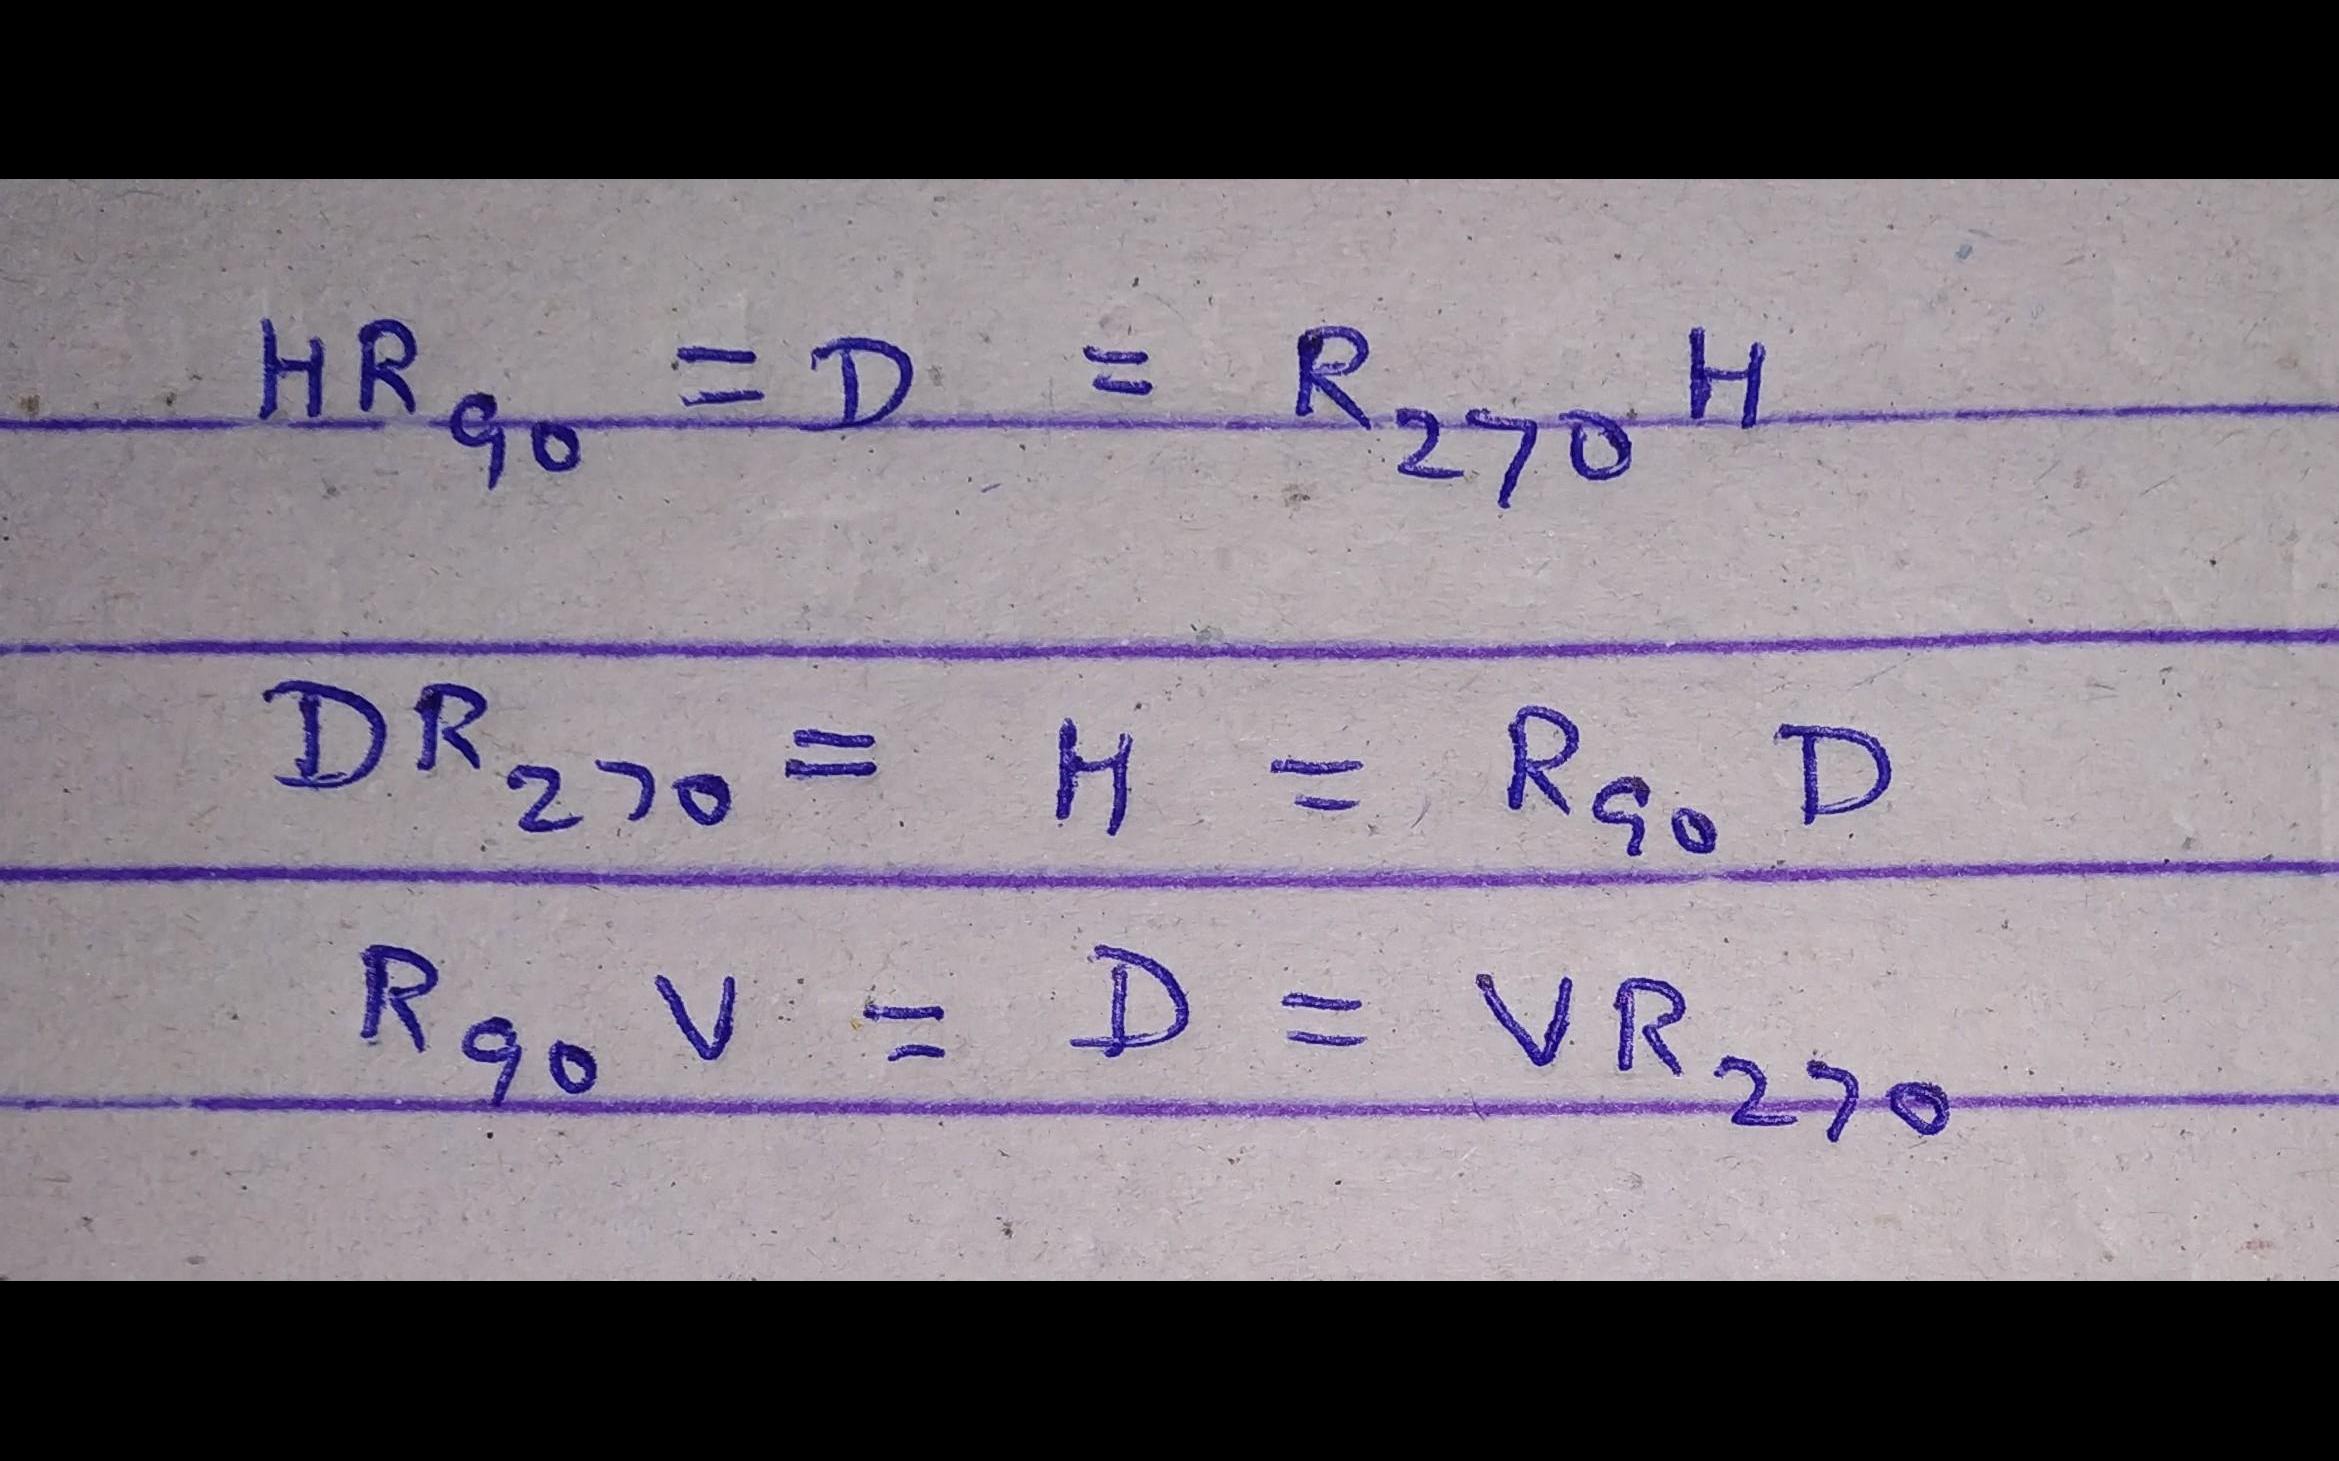 HR₉₀ = D = R₂₇₀H
DR₂₇₀ = H = R₉₀D
R₉₀V = D = VR₂₇₀